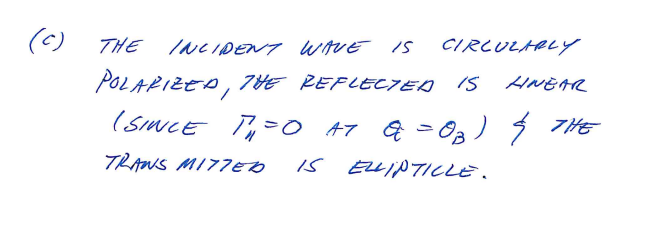 (c) THE INCIDENT WAVE IS CIRCULARLY
POLARIZED, THE REFLECTED IS LINEAR
(SINCE Γ∥=0 AT θi=θB) & THE
TRANSMITTED IS ELLIPTICLE.